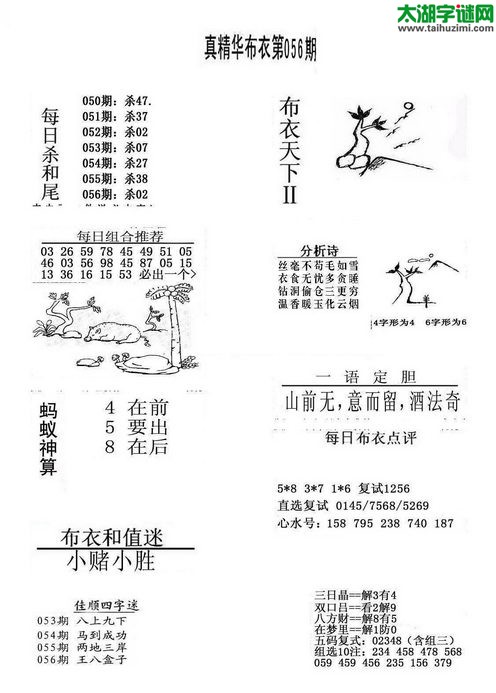 太湖字谜网
www.taihuzimi.com
真精华布衣第056期
每日杀和尾
050期：杀47.
051期：杀37
052期：杀02
053期：杀07
054期：杀27
055期：杀38
056期：杀02
布衣天下II
每日组合推荐
03 26 59 78 45 49 51 05
46 03 56 98 45 87 05 15
13 36 16 15 53 必出一个>
分析诗
丝毫不苟毛如雪
衣食无忧多贪睡
钻洞偷仓三更穷
温香暖玉化云烟
4字形为4 6字形为6
蚂蚁神算
4 在前
5 要出
8 在后
一语定胆
山前无，意而留，酒法奇
每日布衣点评
5*8 3*7 1*6 复试1256
直选复试 0145/7568/5269
心水号：158 795 238 740 187
布衣和值迷
小赌小胜
佳顺四字迷
053期 八上九下
054期 马到成功
055期 两地三岸
056期 王八盒子
三日晶==解3有4
双口吕==看2解9
八方财==解8有5
在梦里==解1防0
五码复式：02348（含组三）
组选10注：234 458 478 568
059 459 456 235 156 379